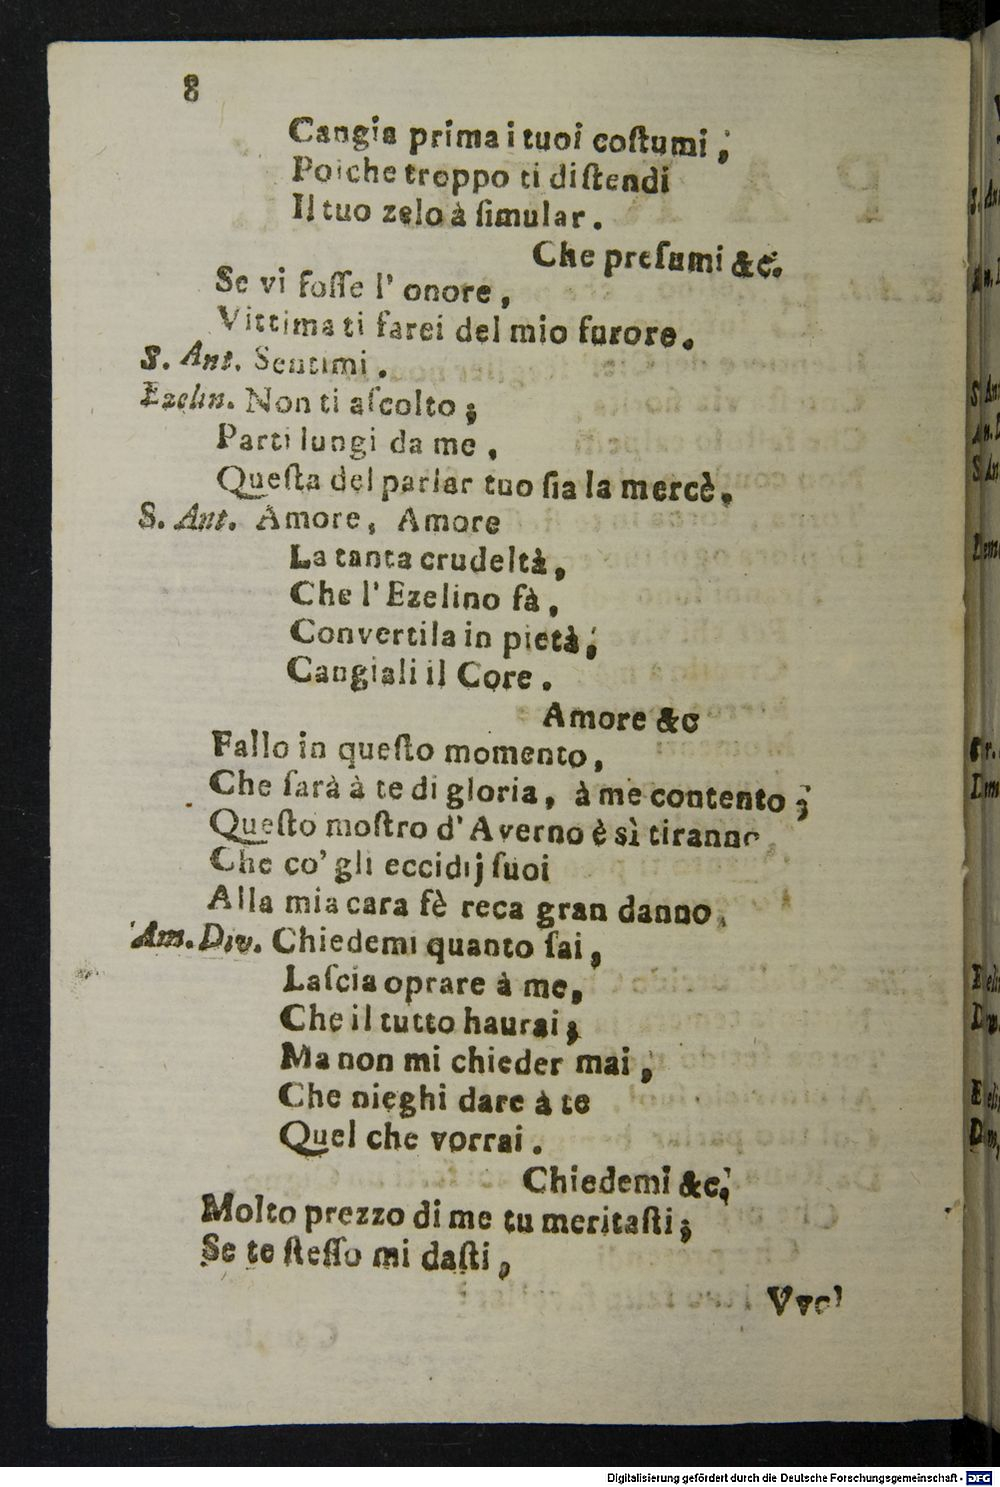 8
Cangia prima i tuoi coſtumi ;
Poiche troppo ti diſtendi
Il tuo zelo à ſimular .
Che preſumi &c.
Se vi foſſe l' onore ,
Vittima ti farei del mio furore .
S. Ant. Sentimi .
Ezelin. Non ti aſcolto ;
Parti lungi da me ,
Queſta del parlar tuo ſia la mercè .
S. Ant. Amore , Amore
La tanta crudeltà ,
Che l' Ezelino fà ,
Convertila in pietà ;
Cangiali il Core .
Amore &c
Fallo in queſto momento ,
Che ſarà à te di gloria , à me contento ;
Queſto moſtro d' Averno è sì tiranno
Che co' gli eccidij ſuoi
Alla mia cara fè reca gran danno .
Am. Div. Chiedemi quanto ſai ,
Laſcia oprare à me ,
Che il tutto haurai ;
Ma non mi chieder mai ,
Che nieghi dare à te
Quel che vorrai .
Chiedemi &c.
Molto prezzo di me tu meritaſti ;
Se te ſteſſo mi daſti ,
Vvol
Digitalisierung gefördert durch die Deutsche Forschungsgemeinschaft - DFG